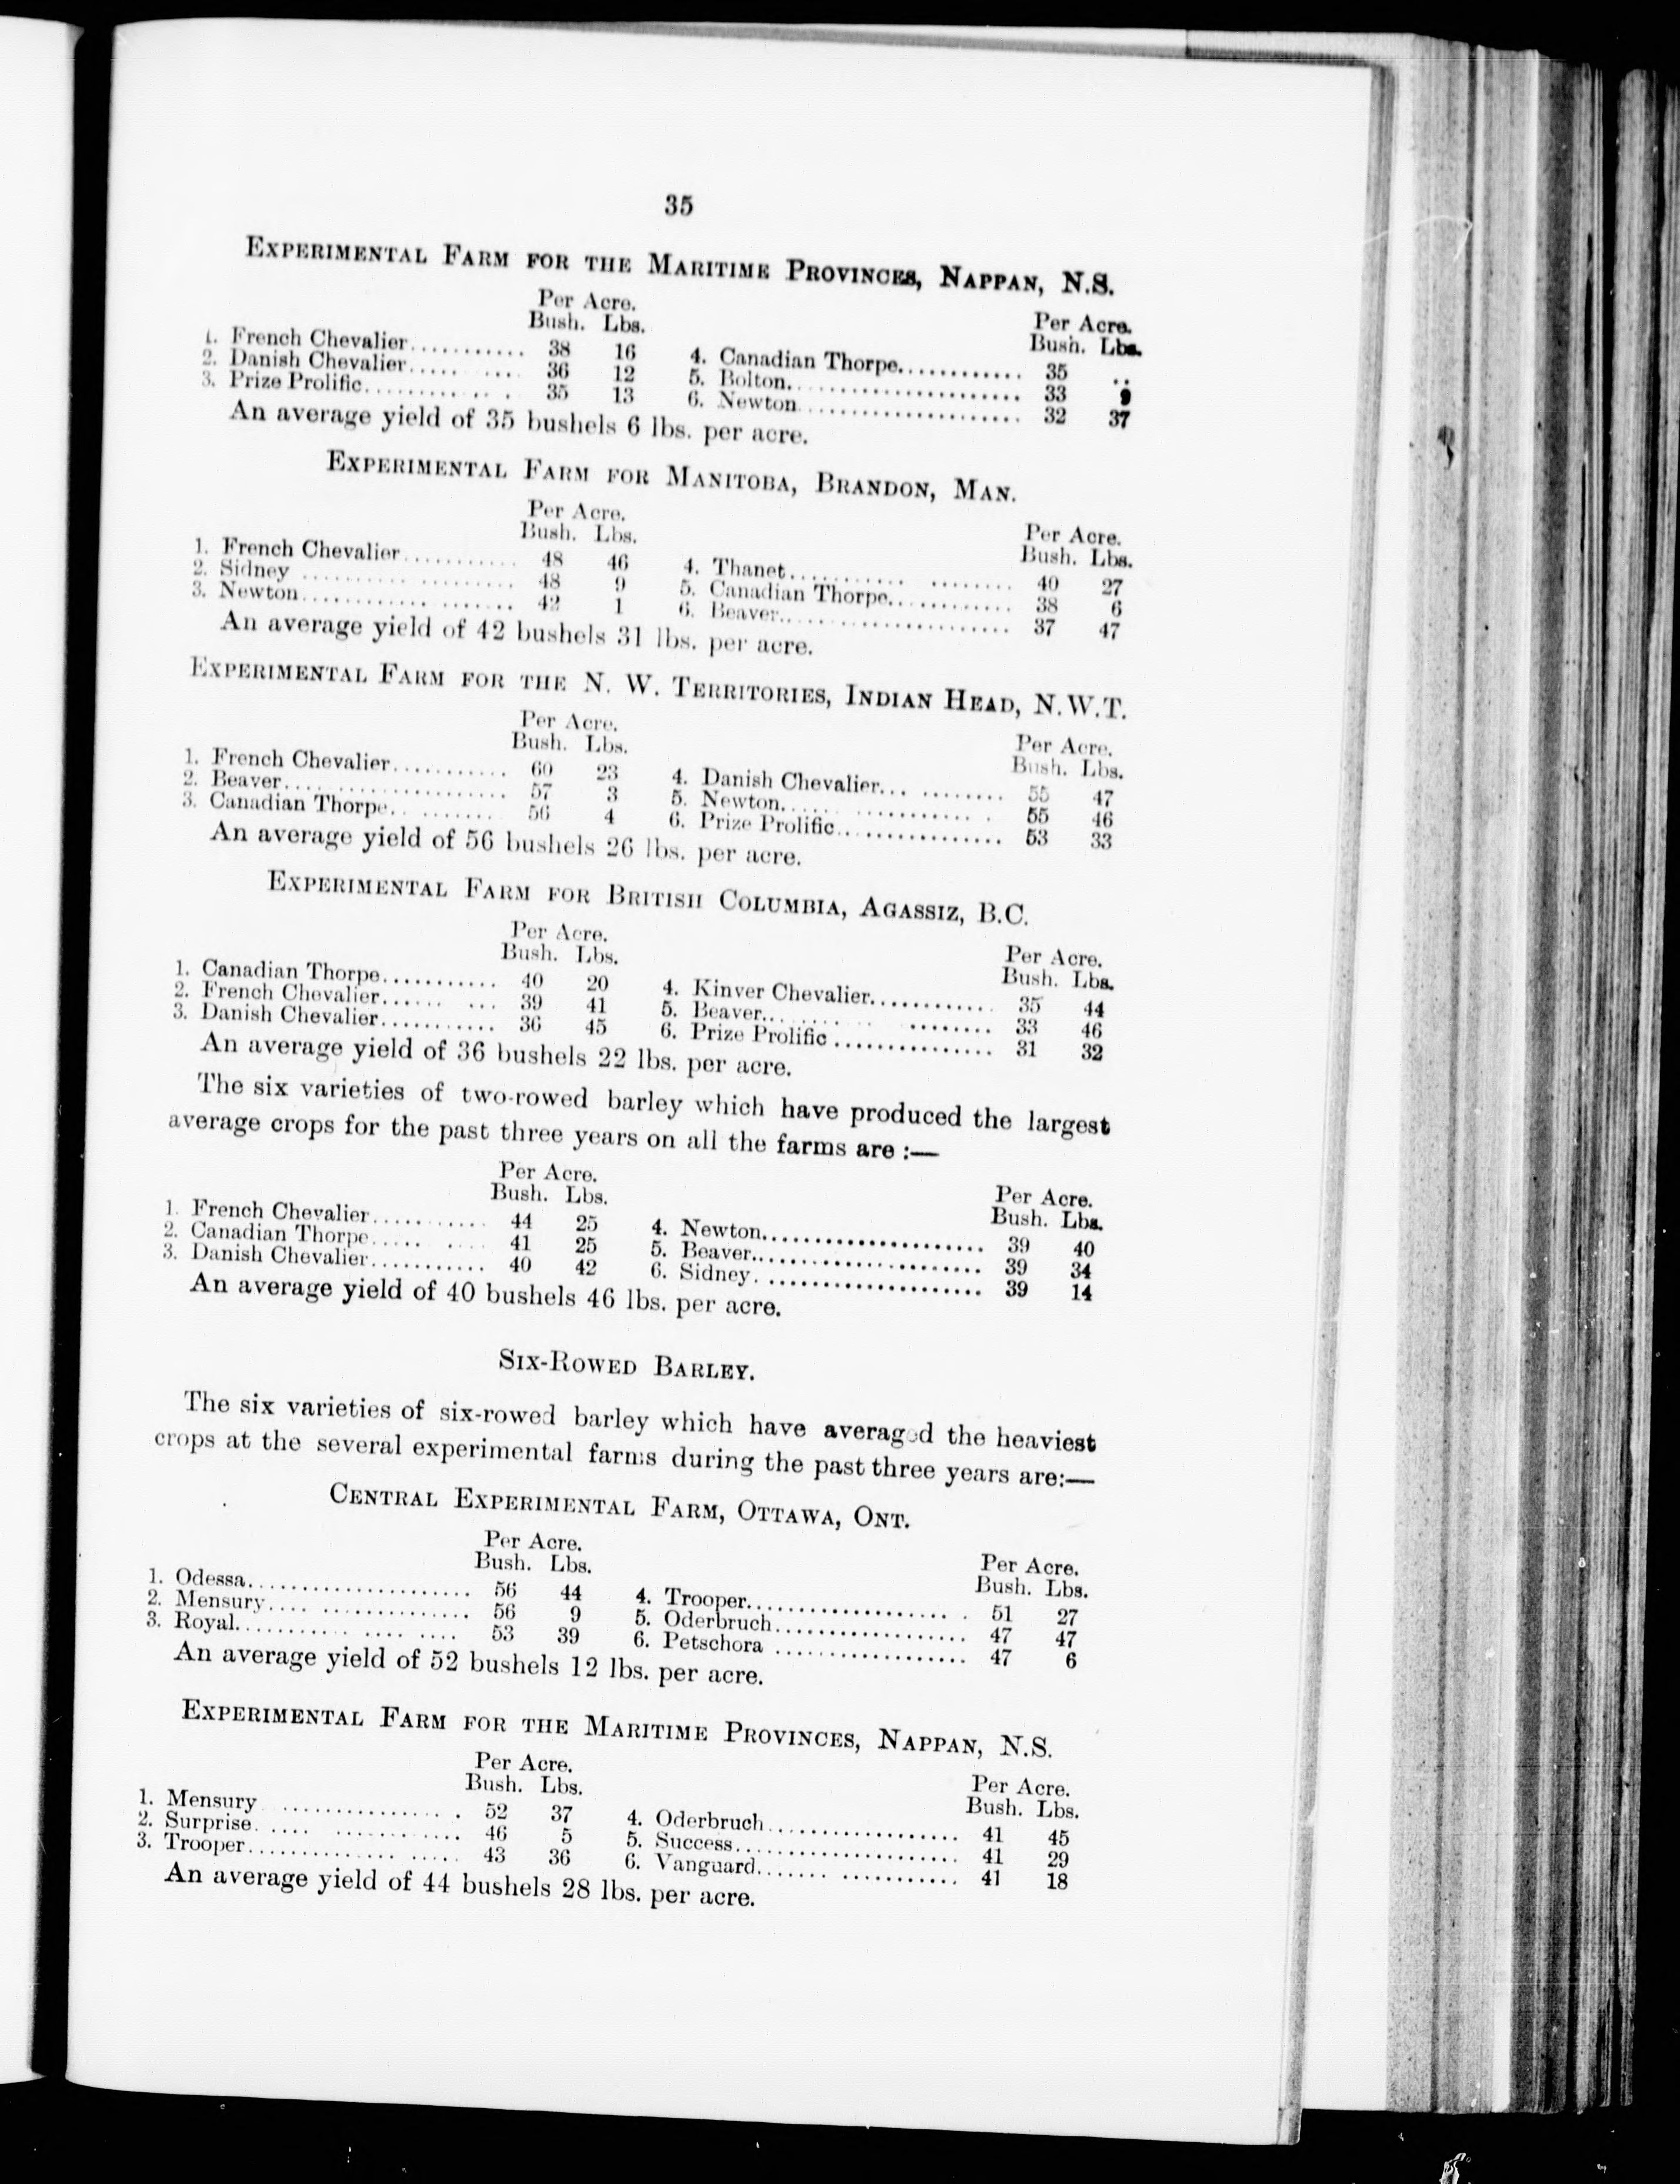 35
EXPERIMENTAL FARM FOR THE MARITIME PROVINCES, NAPPAN, N.S.
Per Acre. Per Acre.
Bush. Lbs. Bush. Lbs.
1. French Chevalier........... 38 16 4. Canadian Thorpe............ 35 ..
2. Danish Chevalier..... .... 36 12 5. Bolton...................... 33 9
3. Prize Prolific.......... .. . 35 13 6. Newton.................... 32 37
An average yield of 35 bushels 6 lbs. per acre.
EXPERIMENTAL FARM FOR MANITOBA, BRANDON, MAN.
Per Acre. Per Acre.
Bush. Lbs. Bush. Lbs.
1. French Chevalier........... 48 46 4. Thanet........... ........ 40 27
2. Sidney .......... ......... 48 9 5. Canadian Thorpe............ 38 6
3. Newton............ ....... 42 1 6. Beaver...................... 37 47
An average yield of 42 bushels 31 lbs. per acre.
EXPERIMENTAL FARM FOR THE N. W. TERRITORIES, INDIAN HEAD, N.W.T.
Per Acre. Per Acre.
Bush. Lbs. Bush. Lbs.
1. French Chevalier........... 60 23 4. Danish Chevalier... ........ 55 47
2. Beaver.................... 57 3 5. Newton.................. . 55 46
3. Canadian Thorpe.. ........ 56 4 6. Prize Prolific............... 53 33
An average yield of 56 bushels 26 lbs. per acre.
EXPERIMENTAL FARM FOR BRITISH COLUMBIA, AGASSIZ, B.C.
Per Acre. Per Acre.
Bush. Lbs. Bush. Lbs.
1. Canadian Thorpe........... 40 20 4. Kinver Chevalier............ 35 44
2. French Chevalier...... ... 39 41 5. Beaver......... ........ 33 46
3. Danish Chevalier........... 36 45 6. Prize Prolific ............... 31 32
An average yield of 36 bushels 22 lbs. per acre.
The six varieties of two-rowed barley which have produced the largest
average crops for the past three years on all the farms are :—
Per Acre. Per Acre.
Bush. Lbs. Bush. Lbs.
1. French Chevalier........... 44 25 4. Newton..................... 39 40
2. Canadian Thorpe..... .... 41 25 5. Beaver...................... 39 34
3. Danish Chevalier........... 40 42 6. Sidney..................... 39 14
An average yield of 40 bushels 46 lbs. per acre.
SIX-ROWED BARLEY.
The six varieties of six-rowed barley which have averaged the heaviest
crops at the several experimental farms during the past three years are:—
CENTRAL EXPERIMENTAL FARM, OTTAWA, ONT.
Per Acre. Per Acre.
Bush. Lbs. Bush. Lbs.
1. Odessa..................... 56 44 4. Trooper.................. . 51 27
2. Mensury.... .............. 56 9 5. Oderbruch.................. 47 47
3. Royal........... .... .... 53 39 6. Petschora .................. 47 6
An average yield of 52 bushels 12 lbs. per acre.
EXPERIMENTAL FARM FOR THE MARITIME PROVINCES, NAPPAN, N.S.
Per Acre. Per Acre.
Bush. Lbs. Bush. Lbs.
1. Mensury ................ . 52 37 4. Oderbruch.................. 41 45
2. Surprise..... ............ 46 5 5. Success..................... 41 29
3. Trooper.............. ..... 43 36 6. Vanguard....... ........... 41 18
An average yield of 44 bushels 28 lbs. per acre.